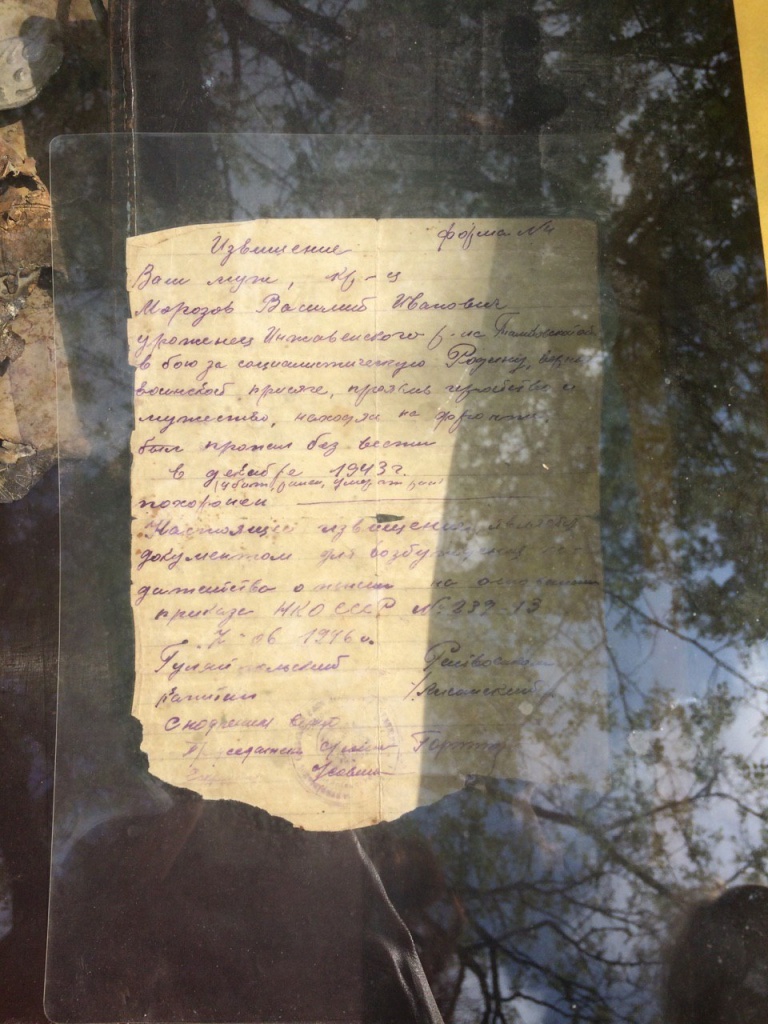 Извещение форма №4
Ваш муж, кр-ц
Морозов Василий Иванович
уроженец Инжавенского р-на Тамбовской об
в бою за социалистическую Родину, верный
воинской присяге, проявив геройство и
мужество, находясь на фронте,
был пропал без вести
в декабре 1943 г.
(убит, ранен, умер от ран)
похоронен
Настоящее извещение является
документом для возбуждения хо
датайства о пенсии на основании
приказа НКО СССР № 239-43
1946 г.
Райвоенком
капитан
С подлинным верно
Председатель